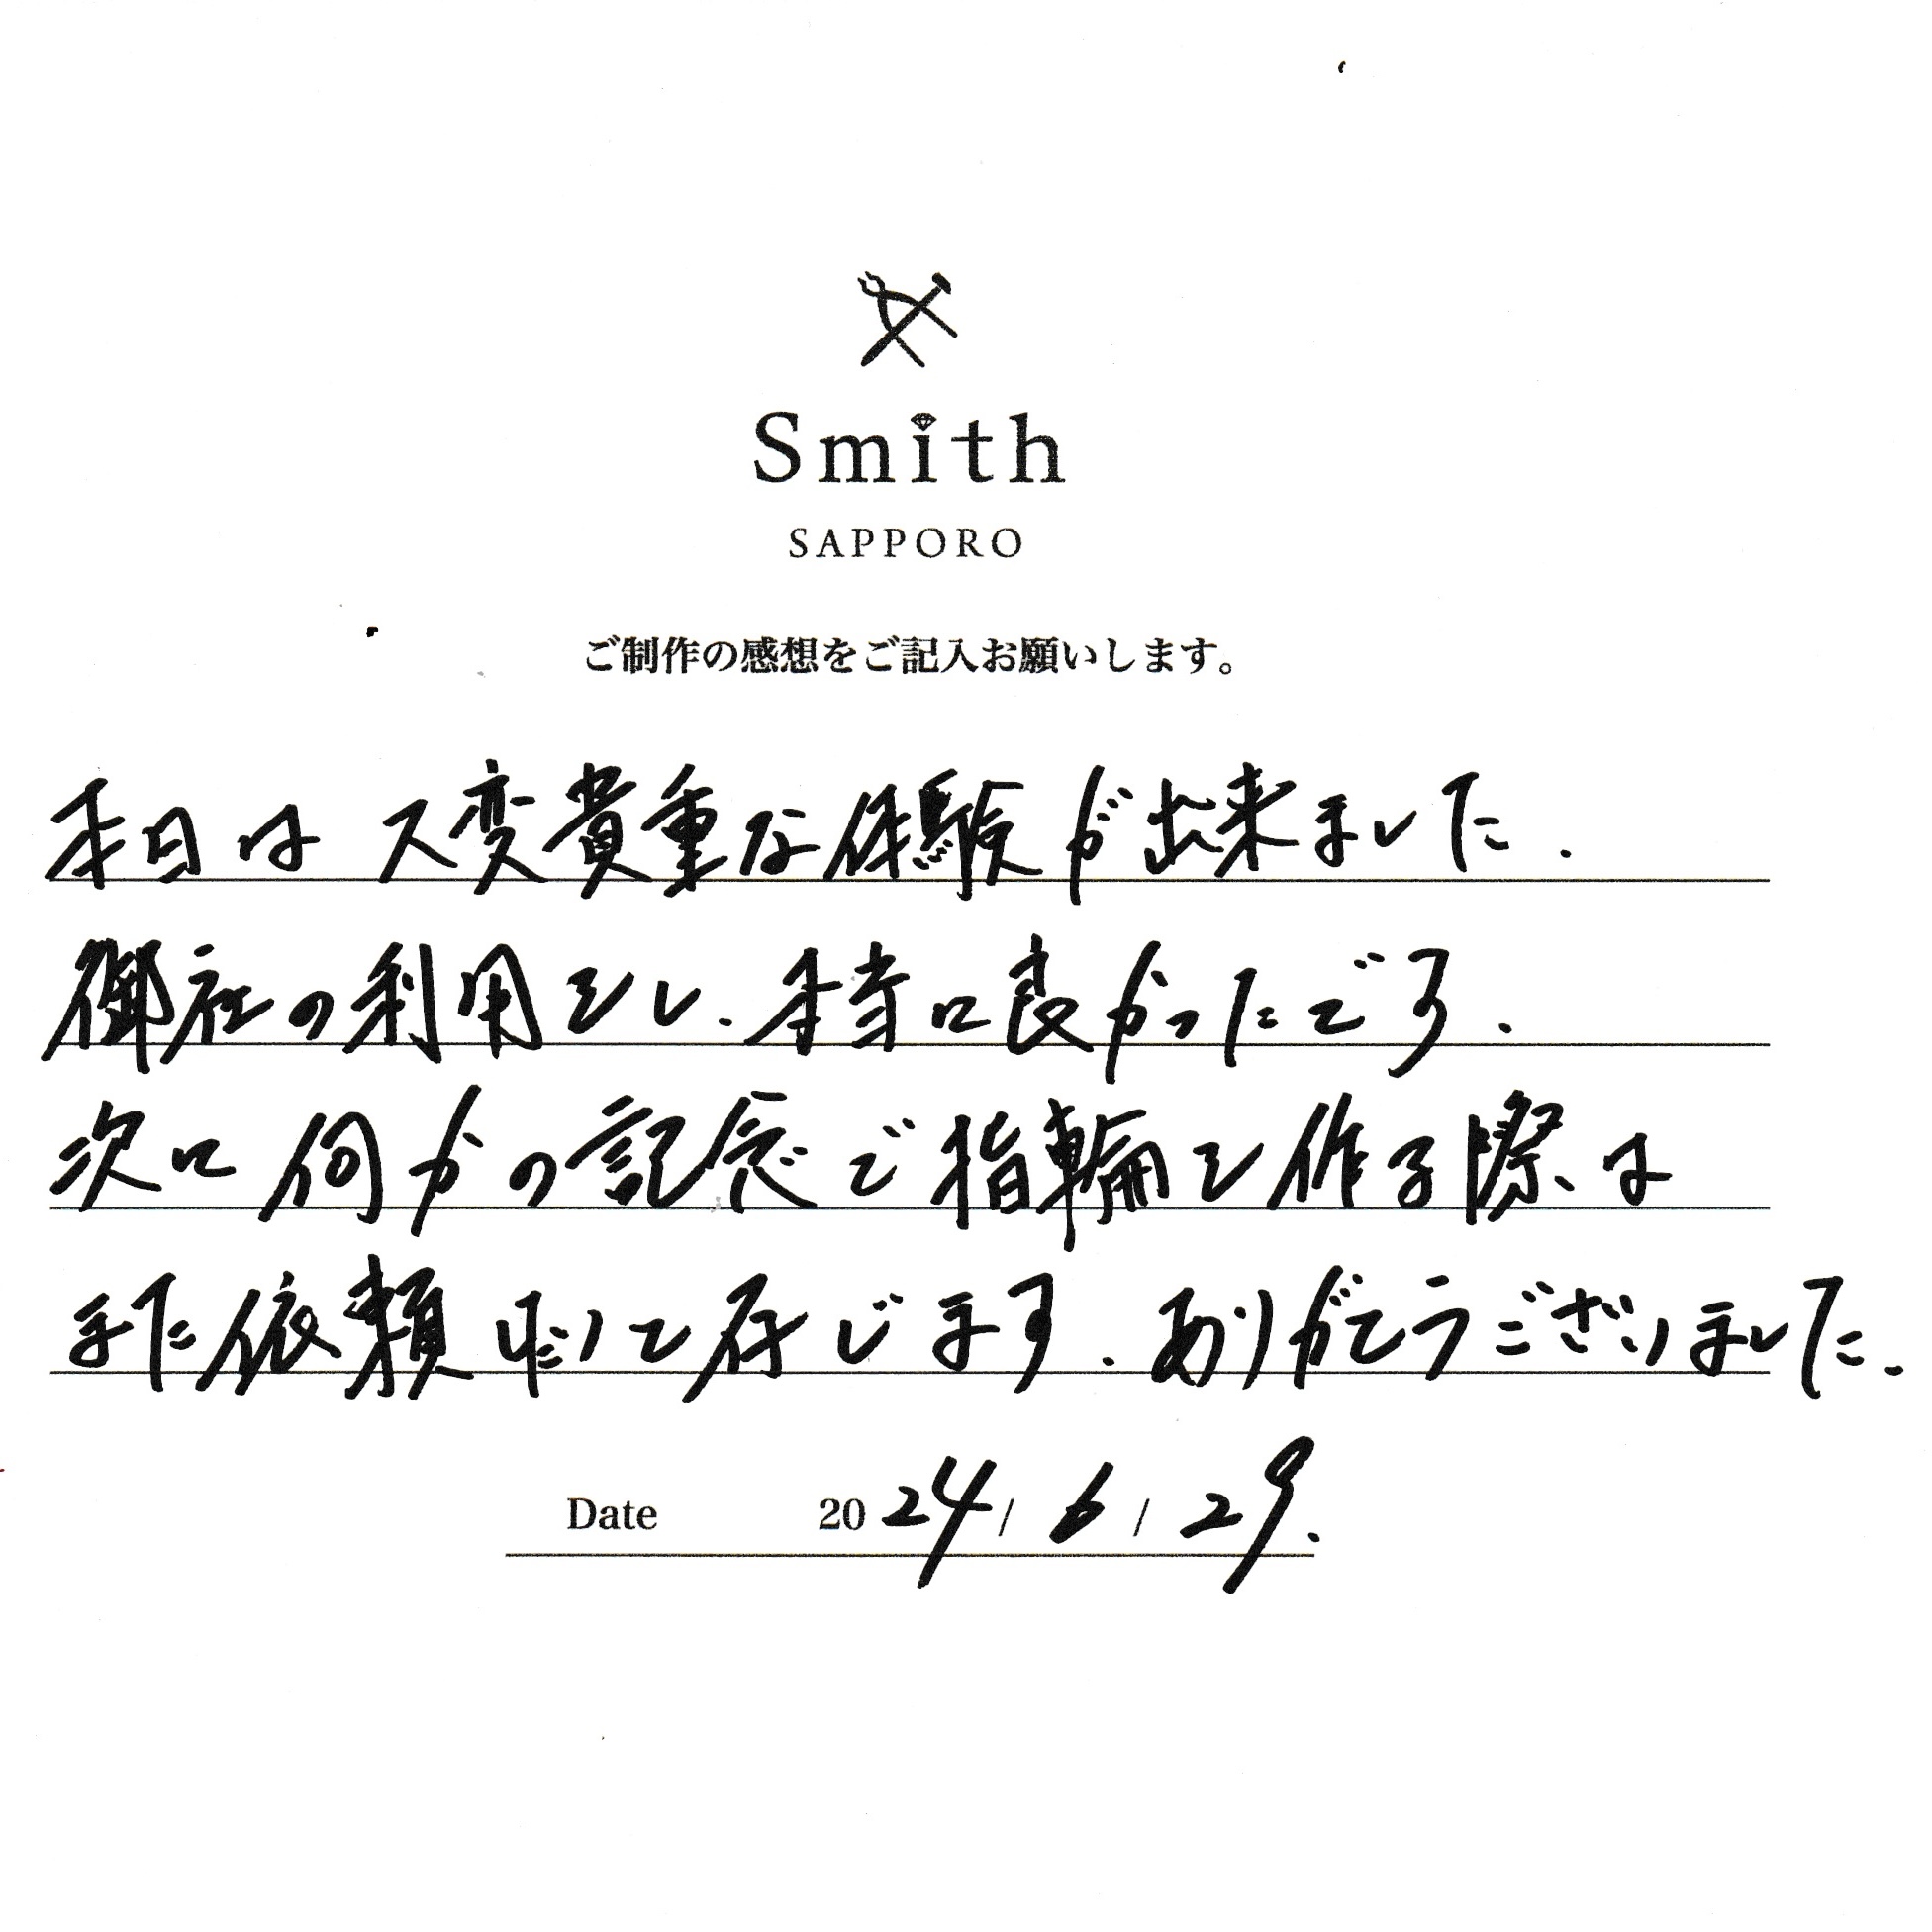 Smith
SAPPORO
ご制作の感想をご記入お願いします。
本日は大変貴重な体験が出来ました.
御社の利用をし.本当に良かったです.
次に何かの記念で指輪を作る際は
また依頼したいと存じます.ありがとうございました.
Date 2024/6/29.